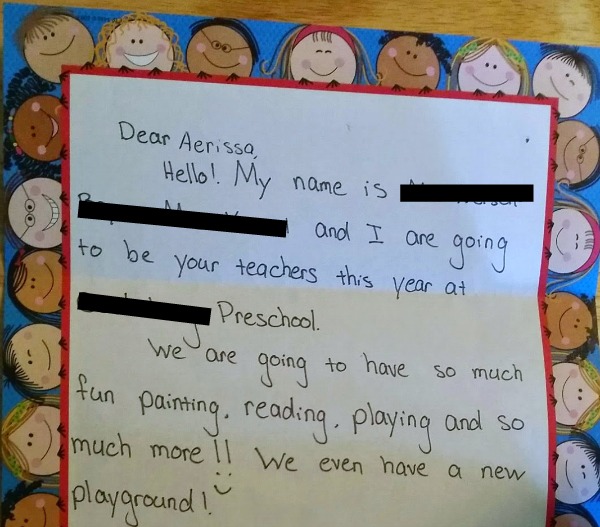 Dear Aerissa,
Hello! My name is
and I are going
to be your teachers this year at
Preschool.
We are going to have so much
fun painting, reading, playing and so
much more!! We even have a new
playground!